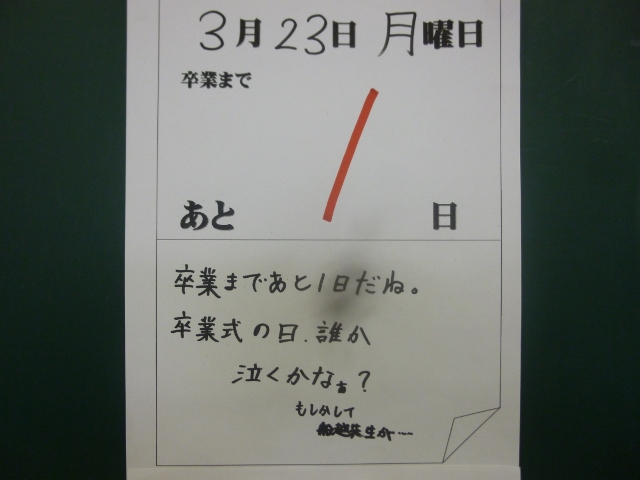 3月23日 月曜日
卒業まで
あと 1 日
卒業まであと1日だね。
卒業式の日、誰か
泣くかな?
もしかして
船越先生が……